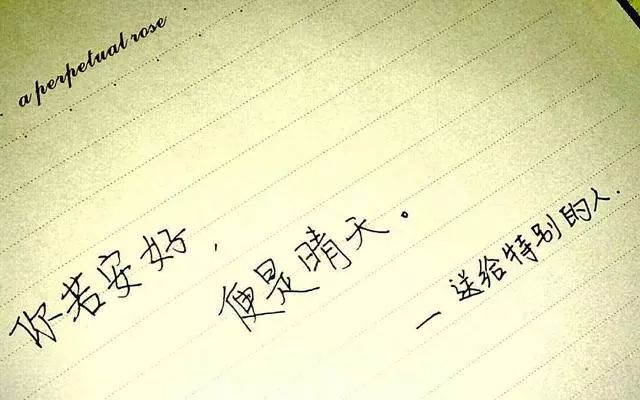 a perpetual rose
你若安好，
便是晴天。
一送给特别的人.